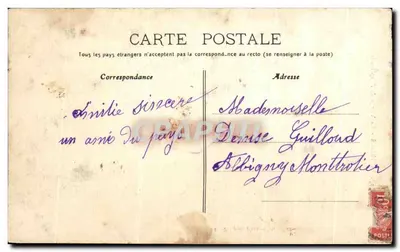 CARTE POSTALE
Tous les pays étrangers n'acceptent pas la correspondance au recto (se renseigner à la poste)
Correspondance
Adresse
Amitié sincère
un ami du pays
Mademoiselle
Denise Guilloud
Albigny Monttrotier
CPAPHIL
10
POSTES